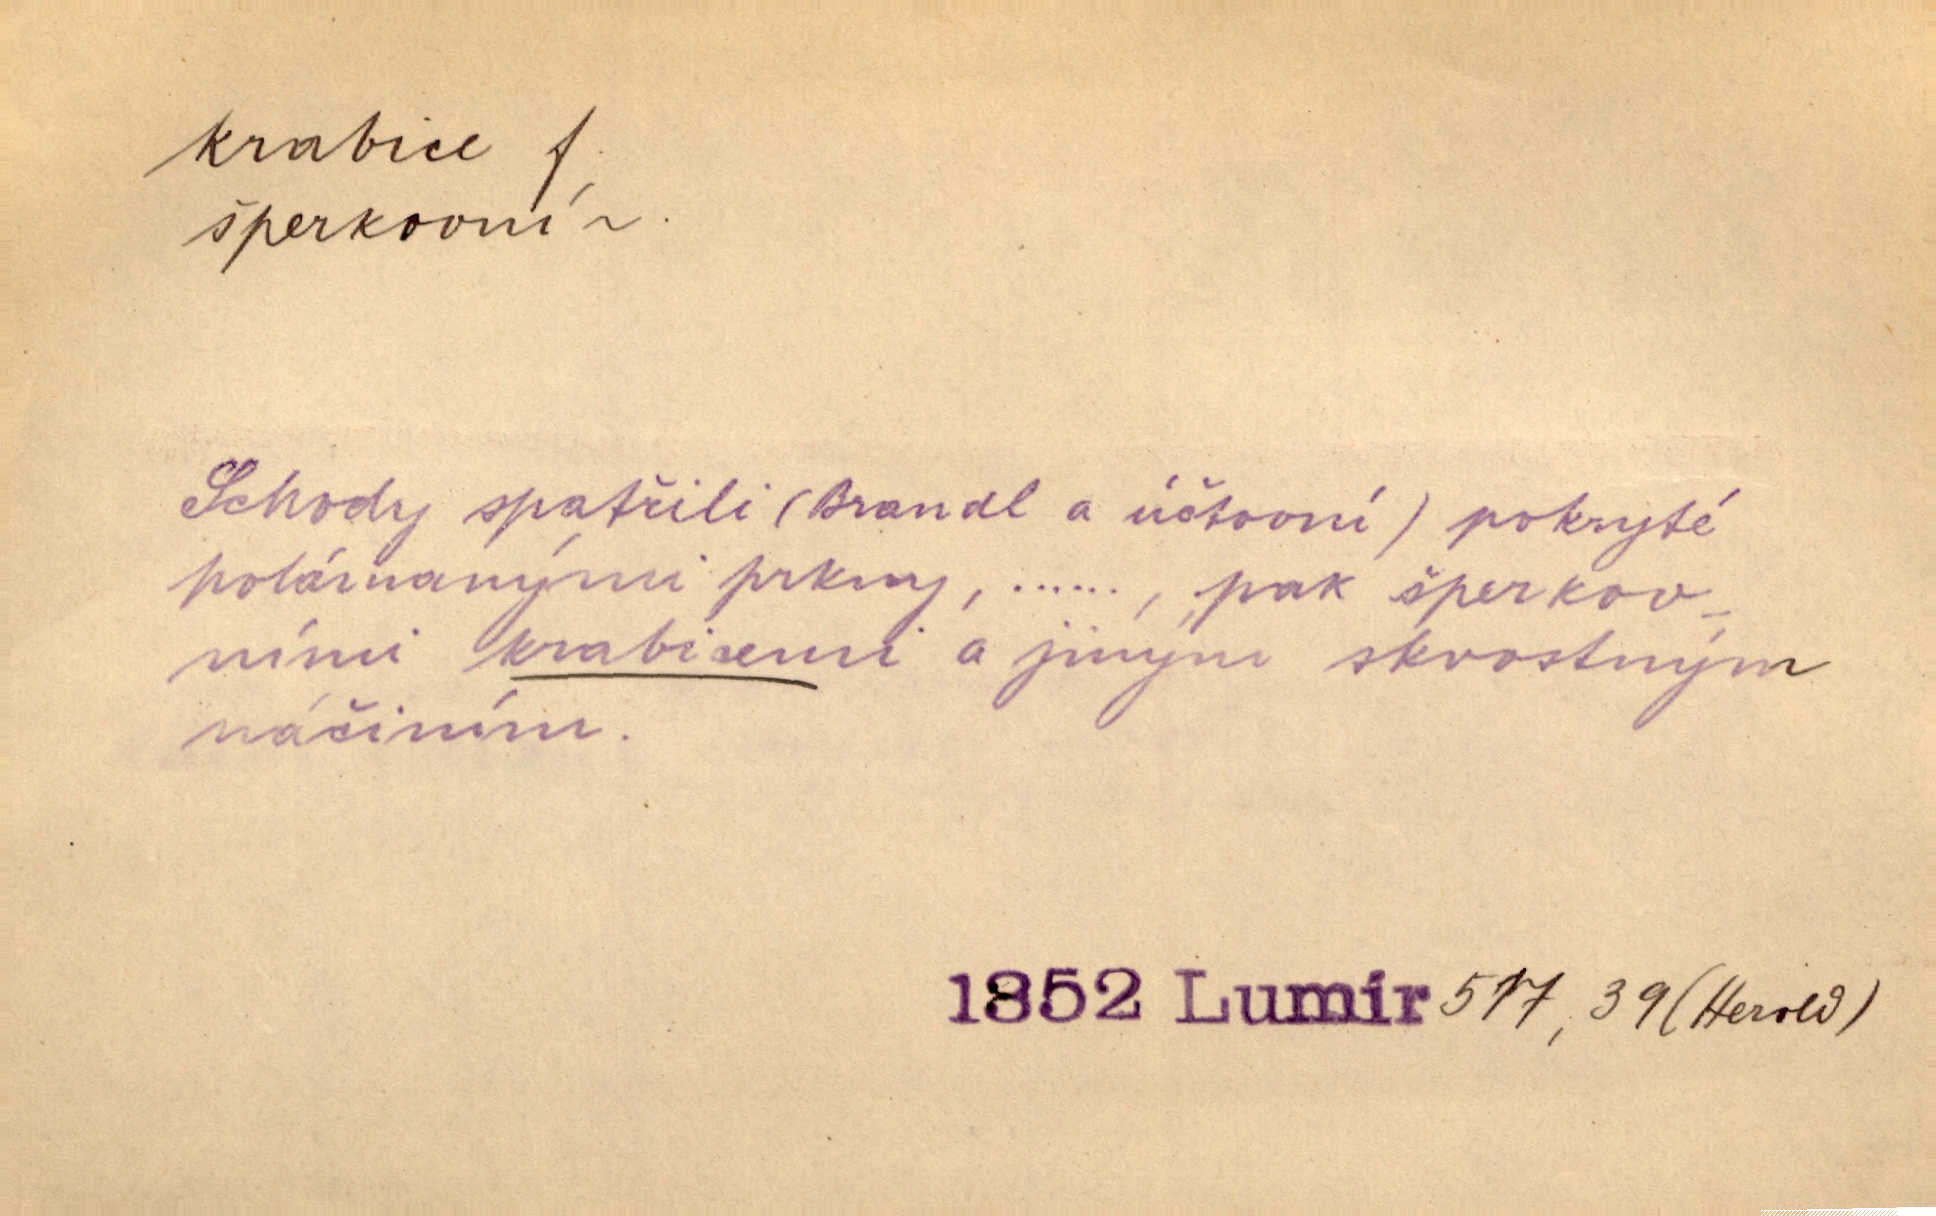 krabice f.
šperkovní ~.
Schody spatřili (Brandl a účtovní) pokryté
polámanými prkny, ......, pak šperkov-
ními krabicemi a jiným skvostným
náčiním.
1852 Lumír 517, 39 (Herold)